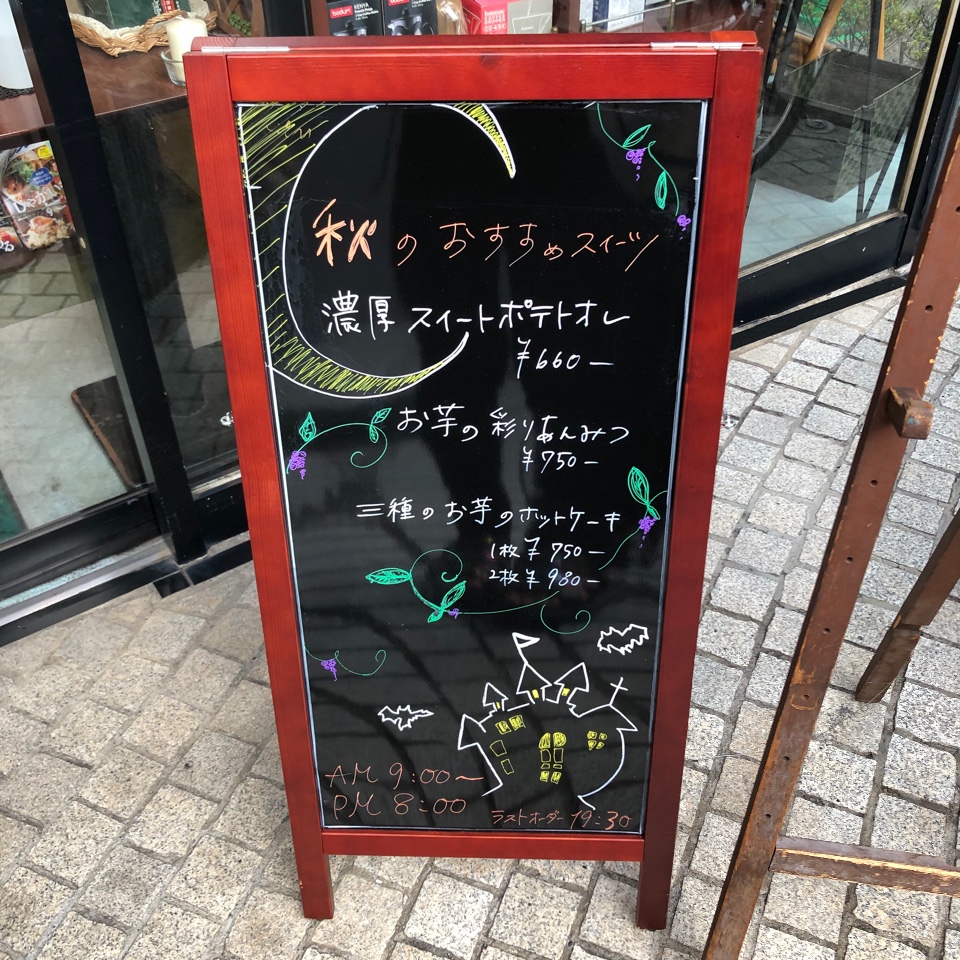 bodum
KENYA
秋のおすすめスイーツ
濃厚スイートポテトオレ
¥660―
お芋の彩りあんみつ
¥750―
三種のお芋のホットケーキ
1枚¥750―
2枚¥980―
AM 9:00～
PM 8:00
ラストオーダー 19:30